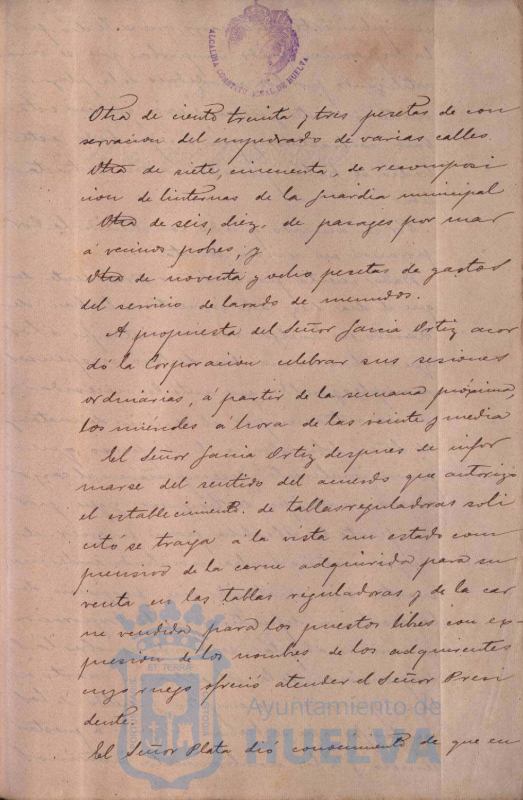 ALCALDIA CONSTITUCIONAL DE HUELVA
Otra de ciento treinta y tres pesetas de con
servacion del empedrado de varias calles.
Otra de siete, cincuenta, de recomposi
cion de linternas de la guardia municipal
Otra de seis, diez, de pasages por mar
á vecinos pobres, y
Otra de noventa y ocho pesetas de gastos
del servicio de lavado de menudos.
A propuesta del Señor Garcia Ortiz acor
dó la Corporacion celebrar sus sesiones
ordinarias, á partir de la semana próxima,
los miércoles á hora de las veinte y media
El Señor Garcia Ortiz despues de infor
marse del sentido del acuerdo que autorizó
el establecimento. de tablas reguladoras soli
citó se traiga á la vista un estado com
prensivo de la carne adquirida para su
venta en las tablas reguladoras y de la car
ne vendida para los puestos libres con ex-
presion de los nombres de los adquirentes
cuyo ruego ofreció atender el Señor Presi
dente.
El Señor Plata dió conocimento de que en
Ayuntamiento de
HUELVA